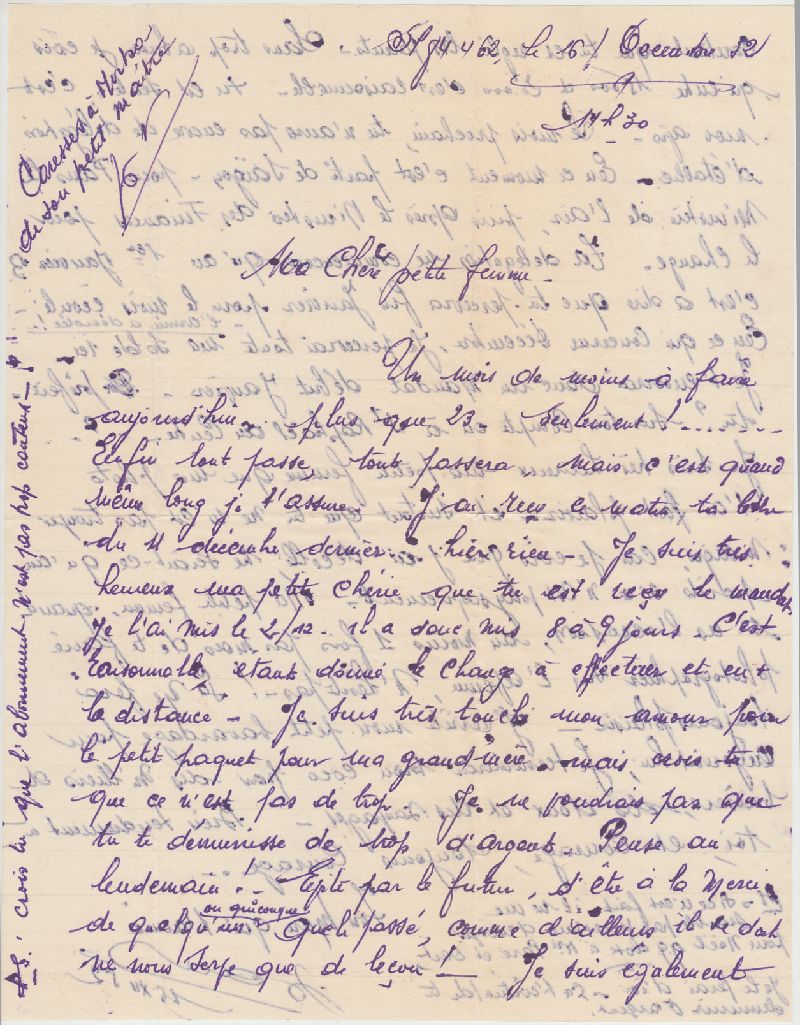 le 15 Décembre 52
17h30
Caresses à
de son petit maître
Ma Chère petite femme -
Un mois de moins à faire
aujourd'hui - plus que 23 - seulement !......
Enfin tout passe, tout passera - mais c'est quand
même long je t'assure. J'ai reçu ce matin ta lettre
du 11 décembre dernier - hier rien - Je suis très
heureux ma petite chérie que tu est reçu le mandat
Je l'ai mis le 2/12. il a donc mis 8 à 9 jours C'est
raisonnable, étant donné le change à effectuer et en +
la distance - Je suis très touché mon amour pour
le petit paquet pour ma grand'mère - mais crois tu
que ce n'est pas de trop. Je ne voudrais pas que
tu te demunisse de trop d'argent Pense au
lendemain ! - Evite par le futur, d'être à la Merci
de quelqu'uns ou quiconque Que le passé, comme d'ailleurs il se doit
ne nous serve que de leçon ! - Je suis également
P.S. : crois tu que l'abonnement n'est pas trop couteux - !